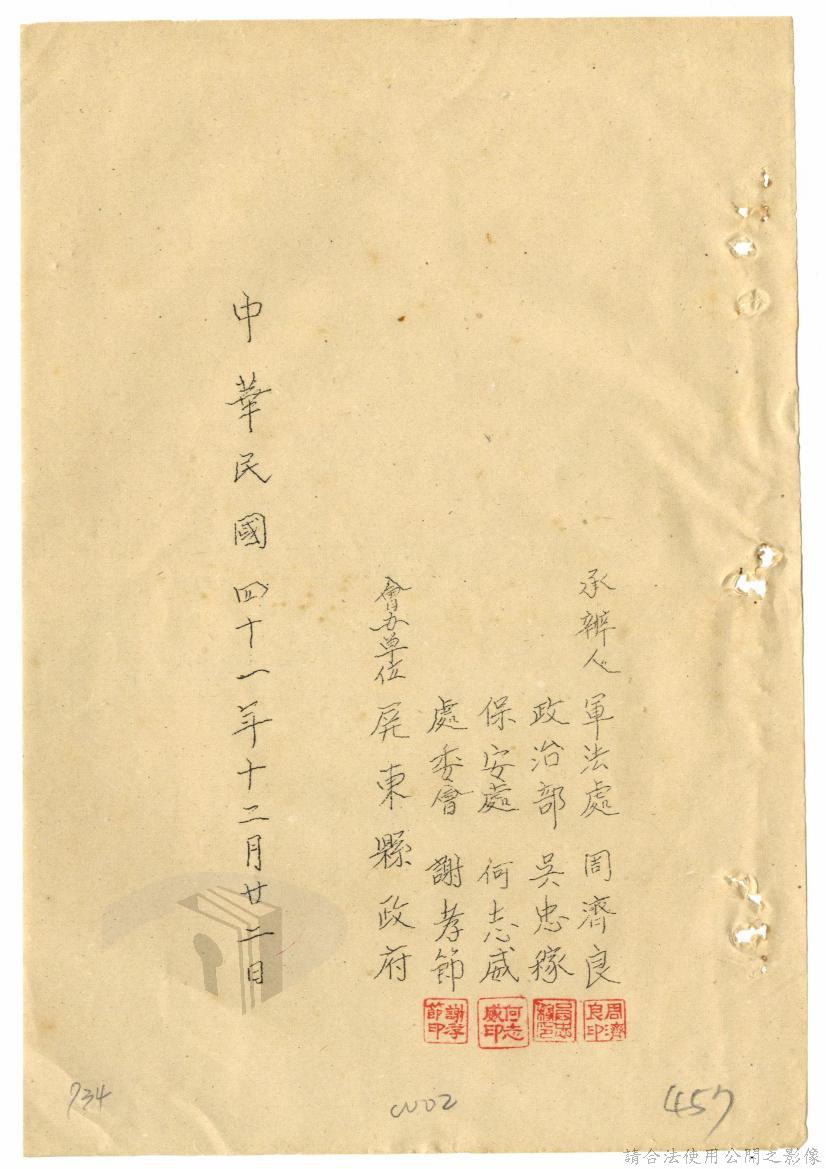 承辦人 軍法處 周濟良
政治部 吳忠稼
保安處 何志威
處委會 謝孝節
會办单位 屏東縣政府
中華民國四十一年十二月廿二日
周濟良印
何志威印
謝孝節印
734
0002
457
請合法使用公開之影像